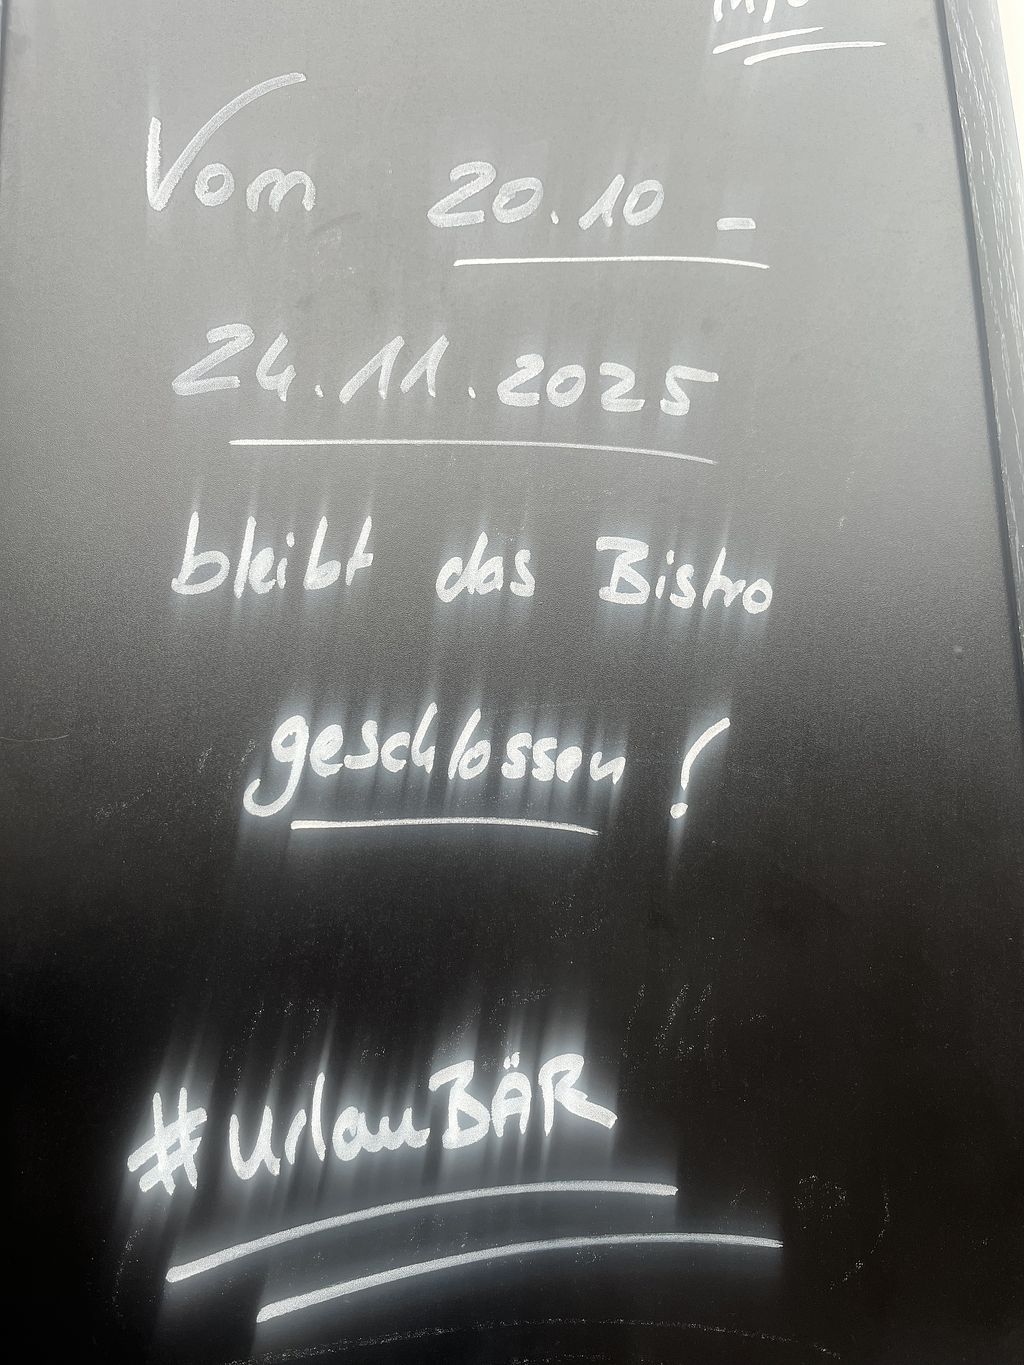 Vom 20.10 -
24.11.2025
bleibt das Bistro
geschlossen !
#UrlauBÄR